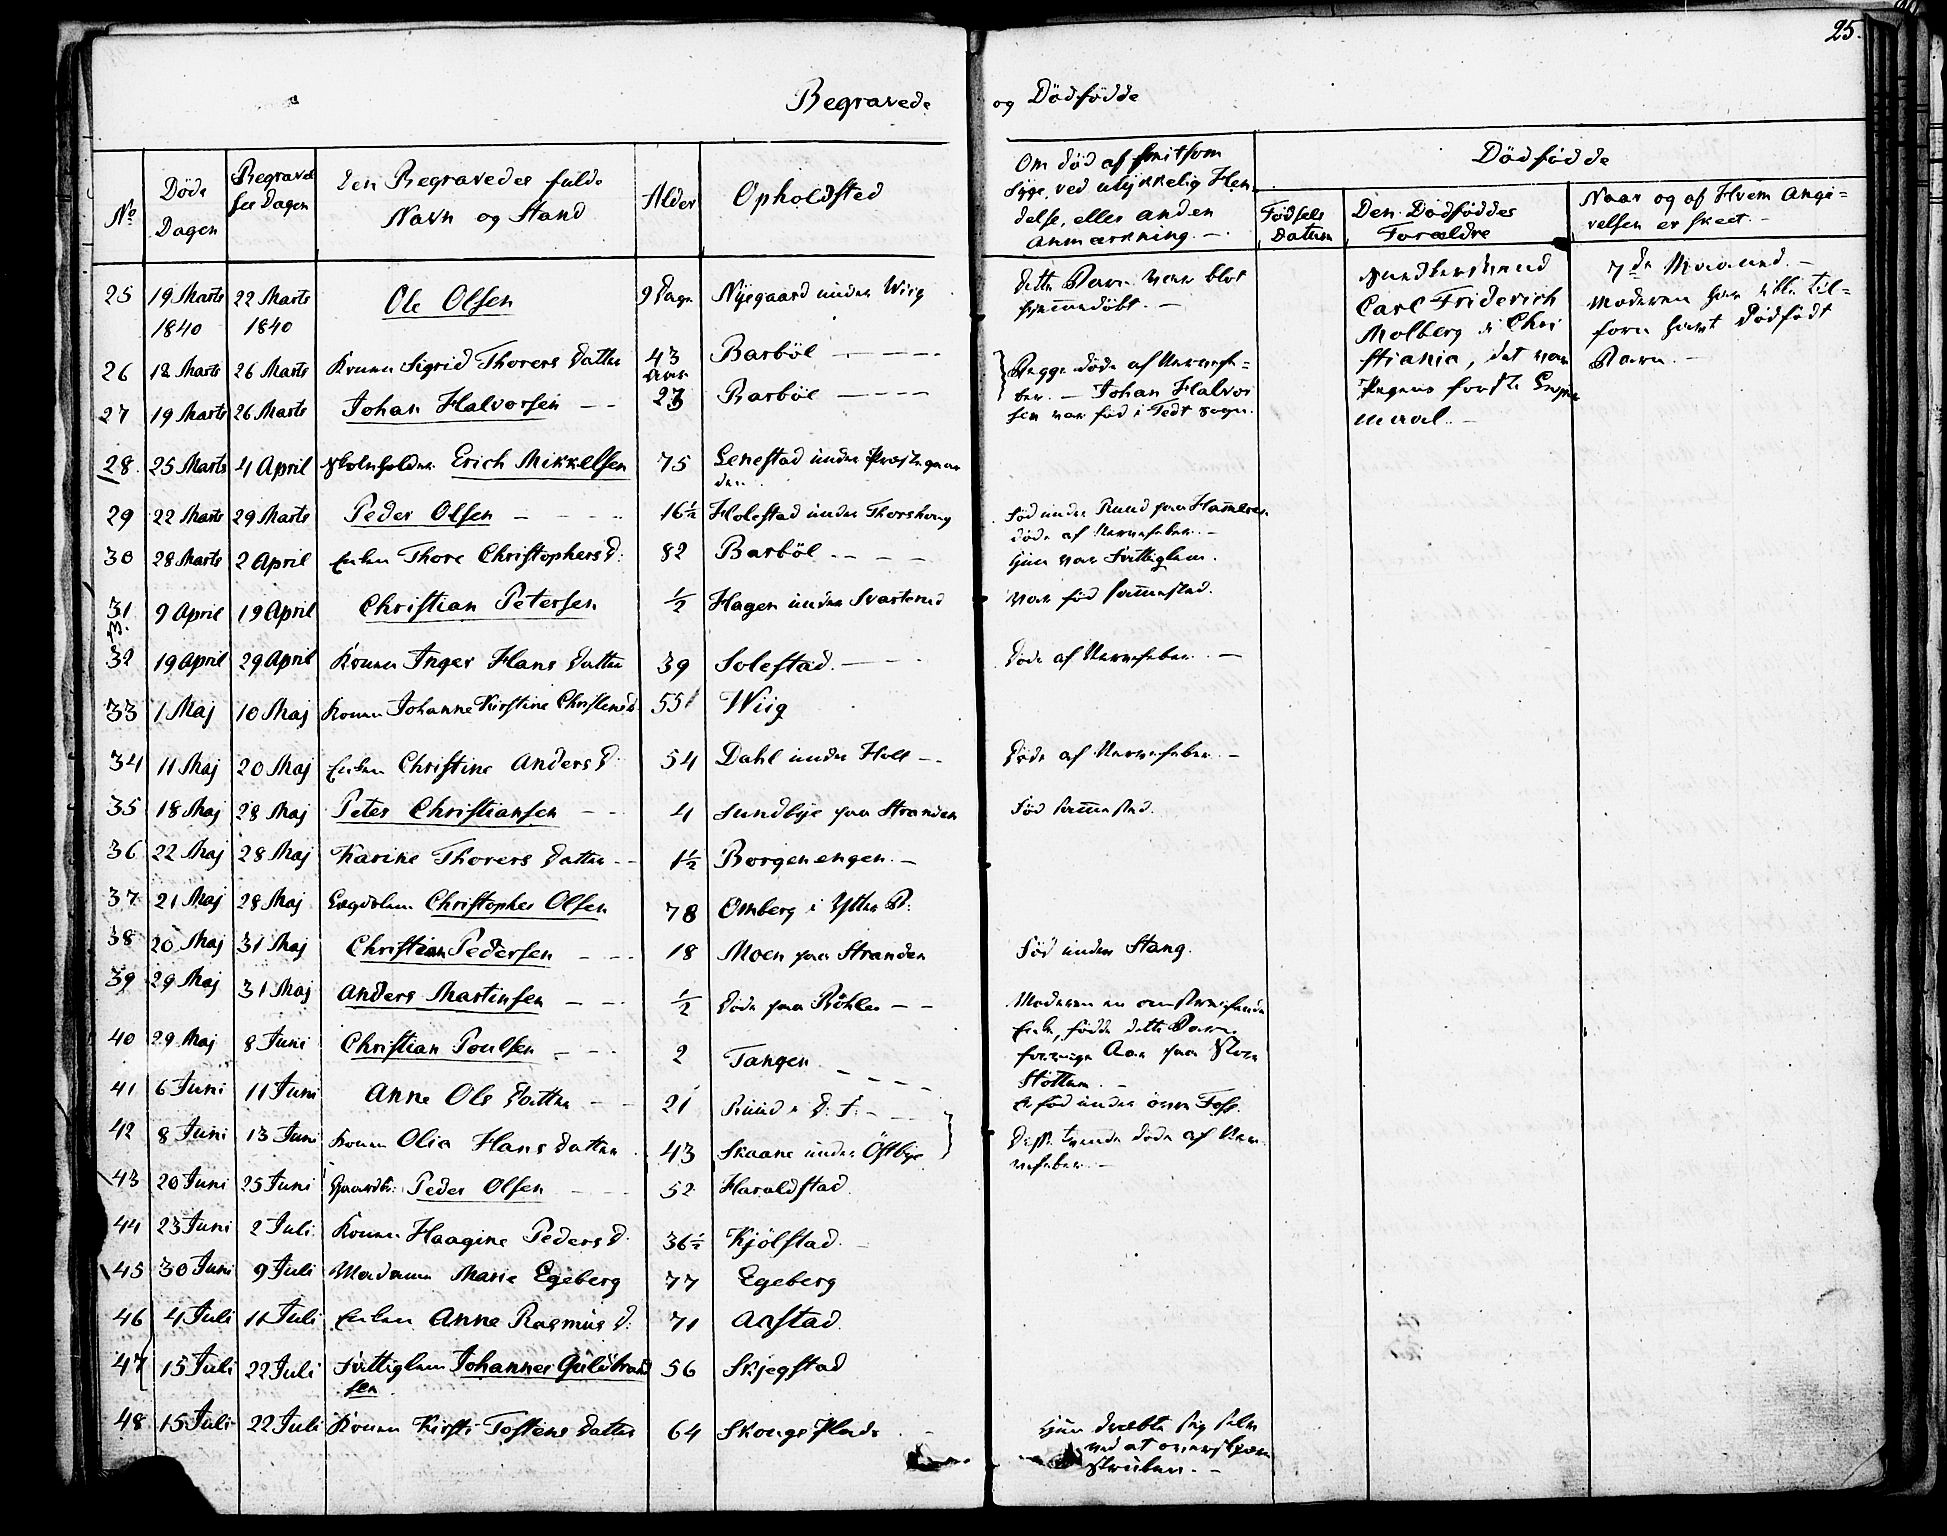 25.
Begravede og Dödfödde
No
Döds Dagen
Begravelses Dagen
den Begravedes fulde Navn og Stand
Alder
Opholdsted
Om död af smitsom
Syge, ved ulykkelig Hen
delse, eller anden
Anmærkning. —
Dödfödde
Födsels Datum
Den Dödföddes Forældre
Naar og af Hvem Angi=
velsen er skeet. —
25 19 Marts 1840 22 Marts 1840 Ole Olsen 9 Dage Nyegaard under Wiig dette Barn var blot hjemmedöbt. —
26 12 Marts 26 Marts Konen Sigrid Thorers datter 43 Aar Barböl — — — —
27 19 Marts 26 Marts Johan Halvorsen — — 23 Barböl — — — —
Begge döde af Nervefe=
ber. — Johan Halvor
sen var föd i Sogn.
Carl Friderich
Molberg i Chri
stiania, det var
Pigens förste
maal. —
7de Maaned. —
Moderen har ikke til=
forn havt Dödfödt
Barn. —
28. 25 Marts 4 April Skoleholder Erich Mikkelsen 75 Lenestad under Præstegaar
den
29 22 Marts 29 Marts Peder Olsen — — — — 16½ Holestad under Thorshoug föd under Rund paa
döde af Nervefeber. —
30 28 Marts 2 April Enken Thore Christophers D: 82 Barböl — — — — Hun var Fattiglem.
31 9 April 19 April Christian Petersen ½ Hagen under Svartrud var föd sammested.
32 19 April 29 April Konen Inger Hans datter 39 Solestad. — — — döde af Nervefeber. —
33 1 Maj 10 Maj Konen Johanne Kirstine Christensd 55 Wiig
34 11 Maj 20 Maj Enken Christine Anders D. 54 Dahl under Hell — döde af Nervefeber. —
35 18 Maj 28 Maj Peter Christiansen — — 4 Sundbye paa Stranden föd sammested.
36 22 Maj 28 Maj Karine Thorers datter — 1½ Borgenengen. —
37 21 Maj 28 Maj Lægdslem Christopher Olsen 78 Omberg i Yttre B:
38 20 Maj 31 Maj Christian Pedersen — — 18 Moen paa Stranden föd under Stang.
39 29 Maj 31 Maj Anders Martinsen — — ½ döde paa Böhler — — Moderen en omstreifende
Enke, födte dette Barn
forrige Aar paa
Stöttum. —
40 29 Maj 8 Juni Christian Poulsen — — 2 Tangen — — — —
41 6 Juni 11 Juni Anne Ols datter — — 21 Ruud i — — Er föd under Foss.
42 8 Juni 13 Juni Konen Olia Hans datter 43 Skaane under Östbye Disse tvende döde af Ner
vefeber. —
43 20 Juni 25 Juni Gaardbr: Peder Olsen — — 52 Haraldstad.
44 23 Juni 2 Juli Konen Haagine Peders D. 36½ Kjölstad. —
45 30 Juni 9 Juli Madame Marie Egeberg 77 Egeberg
46 4 Juli 11 Juli Enken Anne Rasmus D. 71 Aastad.
47 15 Juli 22 Juli Fattiglem Johannes Guldbrand
sen 56 Skjegstad
48 15 Juli 22 Juli Konen Kirsti Tostens datter 64 Skougs Plads Hun dræbte sig selv
ved at overskjære
Struben. —